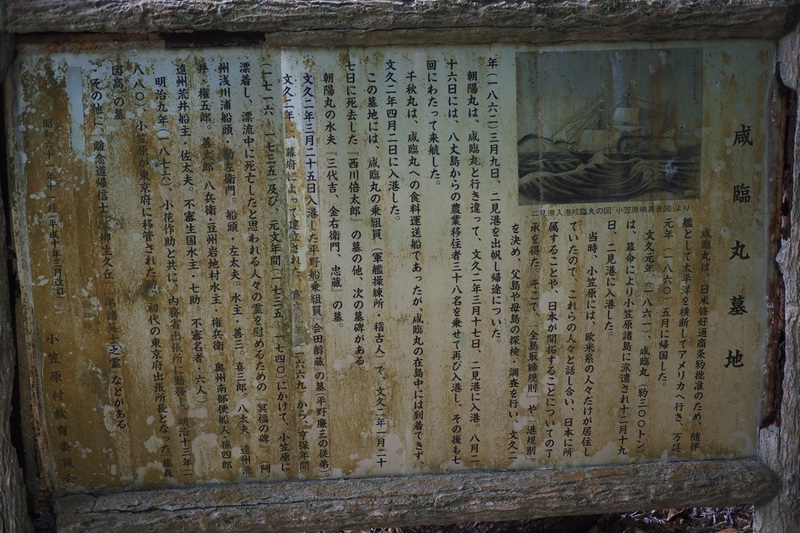 咸臨丸墓地
咸臨丸は、日米修好通商条約批准のため、随伴
艦として太平洋を横断してアメリカへ行き、万延
元年(一八六〇)五月に帰国した。
文久元年(一八六一)、咸臨丸(約三〇〇トン
は、幕命により小笠原諸島に派遣され十二月十九
日、二見港に入港した。
当時、小笠原には、欧米系の人々だけが居住し
ていたので、これらの人々と話し合い、日本に所
属することや、日本が開拓することについての了
承を得た。そこで、「全島取締規則」や「港規則
を決め、父島や母島の探検・調査を行い、文久二
二見港入港咸臨丸の図「小笠原嶋真景図」より
年(一八六二)三月九日、二見港を出帆し帰途についた。
朝陽丸は、咸臨丸と行き違って、文久二年三月十七日、二見港に入港、八月二
十六日には、八丈島からの農業移住者三十八名を乗せて再び入港し、その後も七
回にわたって来航した。
千秋丸は、咸臨丸への食料運送船であったが、咸臨丸の在島中には到着できず、
文久二年四月二日に入港した。
この墓地には、咸臨丸の乗組員(軍艦操練所 稽古人)で、文久二年一月二十
七日に死去した「西川倍太郎」の墓の他、次の墓碑がある
朝陽丸の水夫「三代吉 金右衛門、忠蔵」の墓。
文久二年三月二十五日入港した平野船乗組員「会田爵蔵」の墓(平野廉三の従弟)。
文久二年に、幕府によって建立された、 六六九 から、享保年間
(一七一六 一七三五)及び、元文年間(一七三五 一七四〇)にかけて、小笠原に
漂着し、漂流中に死亡したと思われる人々の霊を慰めるための「冥福の碑」(阿
州浅川浦船頭・勘左衛門。船頭・左太夫 水主・善三。喜三郎 八太夫 遠州
井・権五郎。甚太郎 八兵衛。豆州岩地村水主・権兵衛 奥州南部便船人・孫四郎
遠州荒井船主・佐太夫。不審生国水主・七助 不審名者・六人)
明治九年(一八七六)、小花作助と共に、内務省出張所に勤務し、明治十三年(一
八八〇) 小笠原が東京府に移管された 初代の東京府出張所長となった
図高」の墓
その他に「離念道帰信士」 柳生久丘 之霊」などがある。
昭和 年 月(平成十年三月改訂)
小笠原村教育委員会